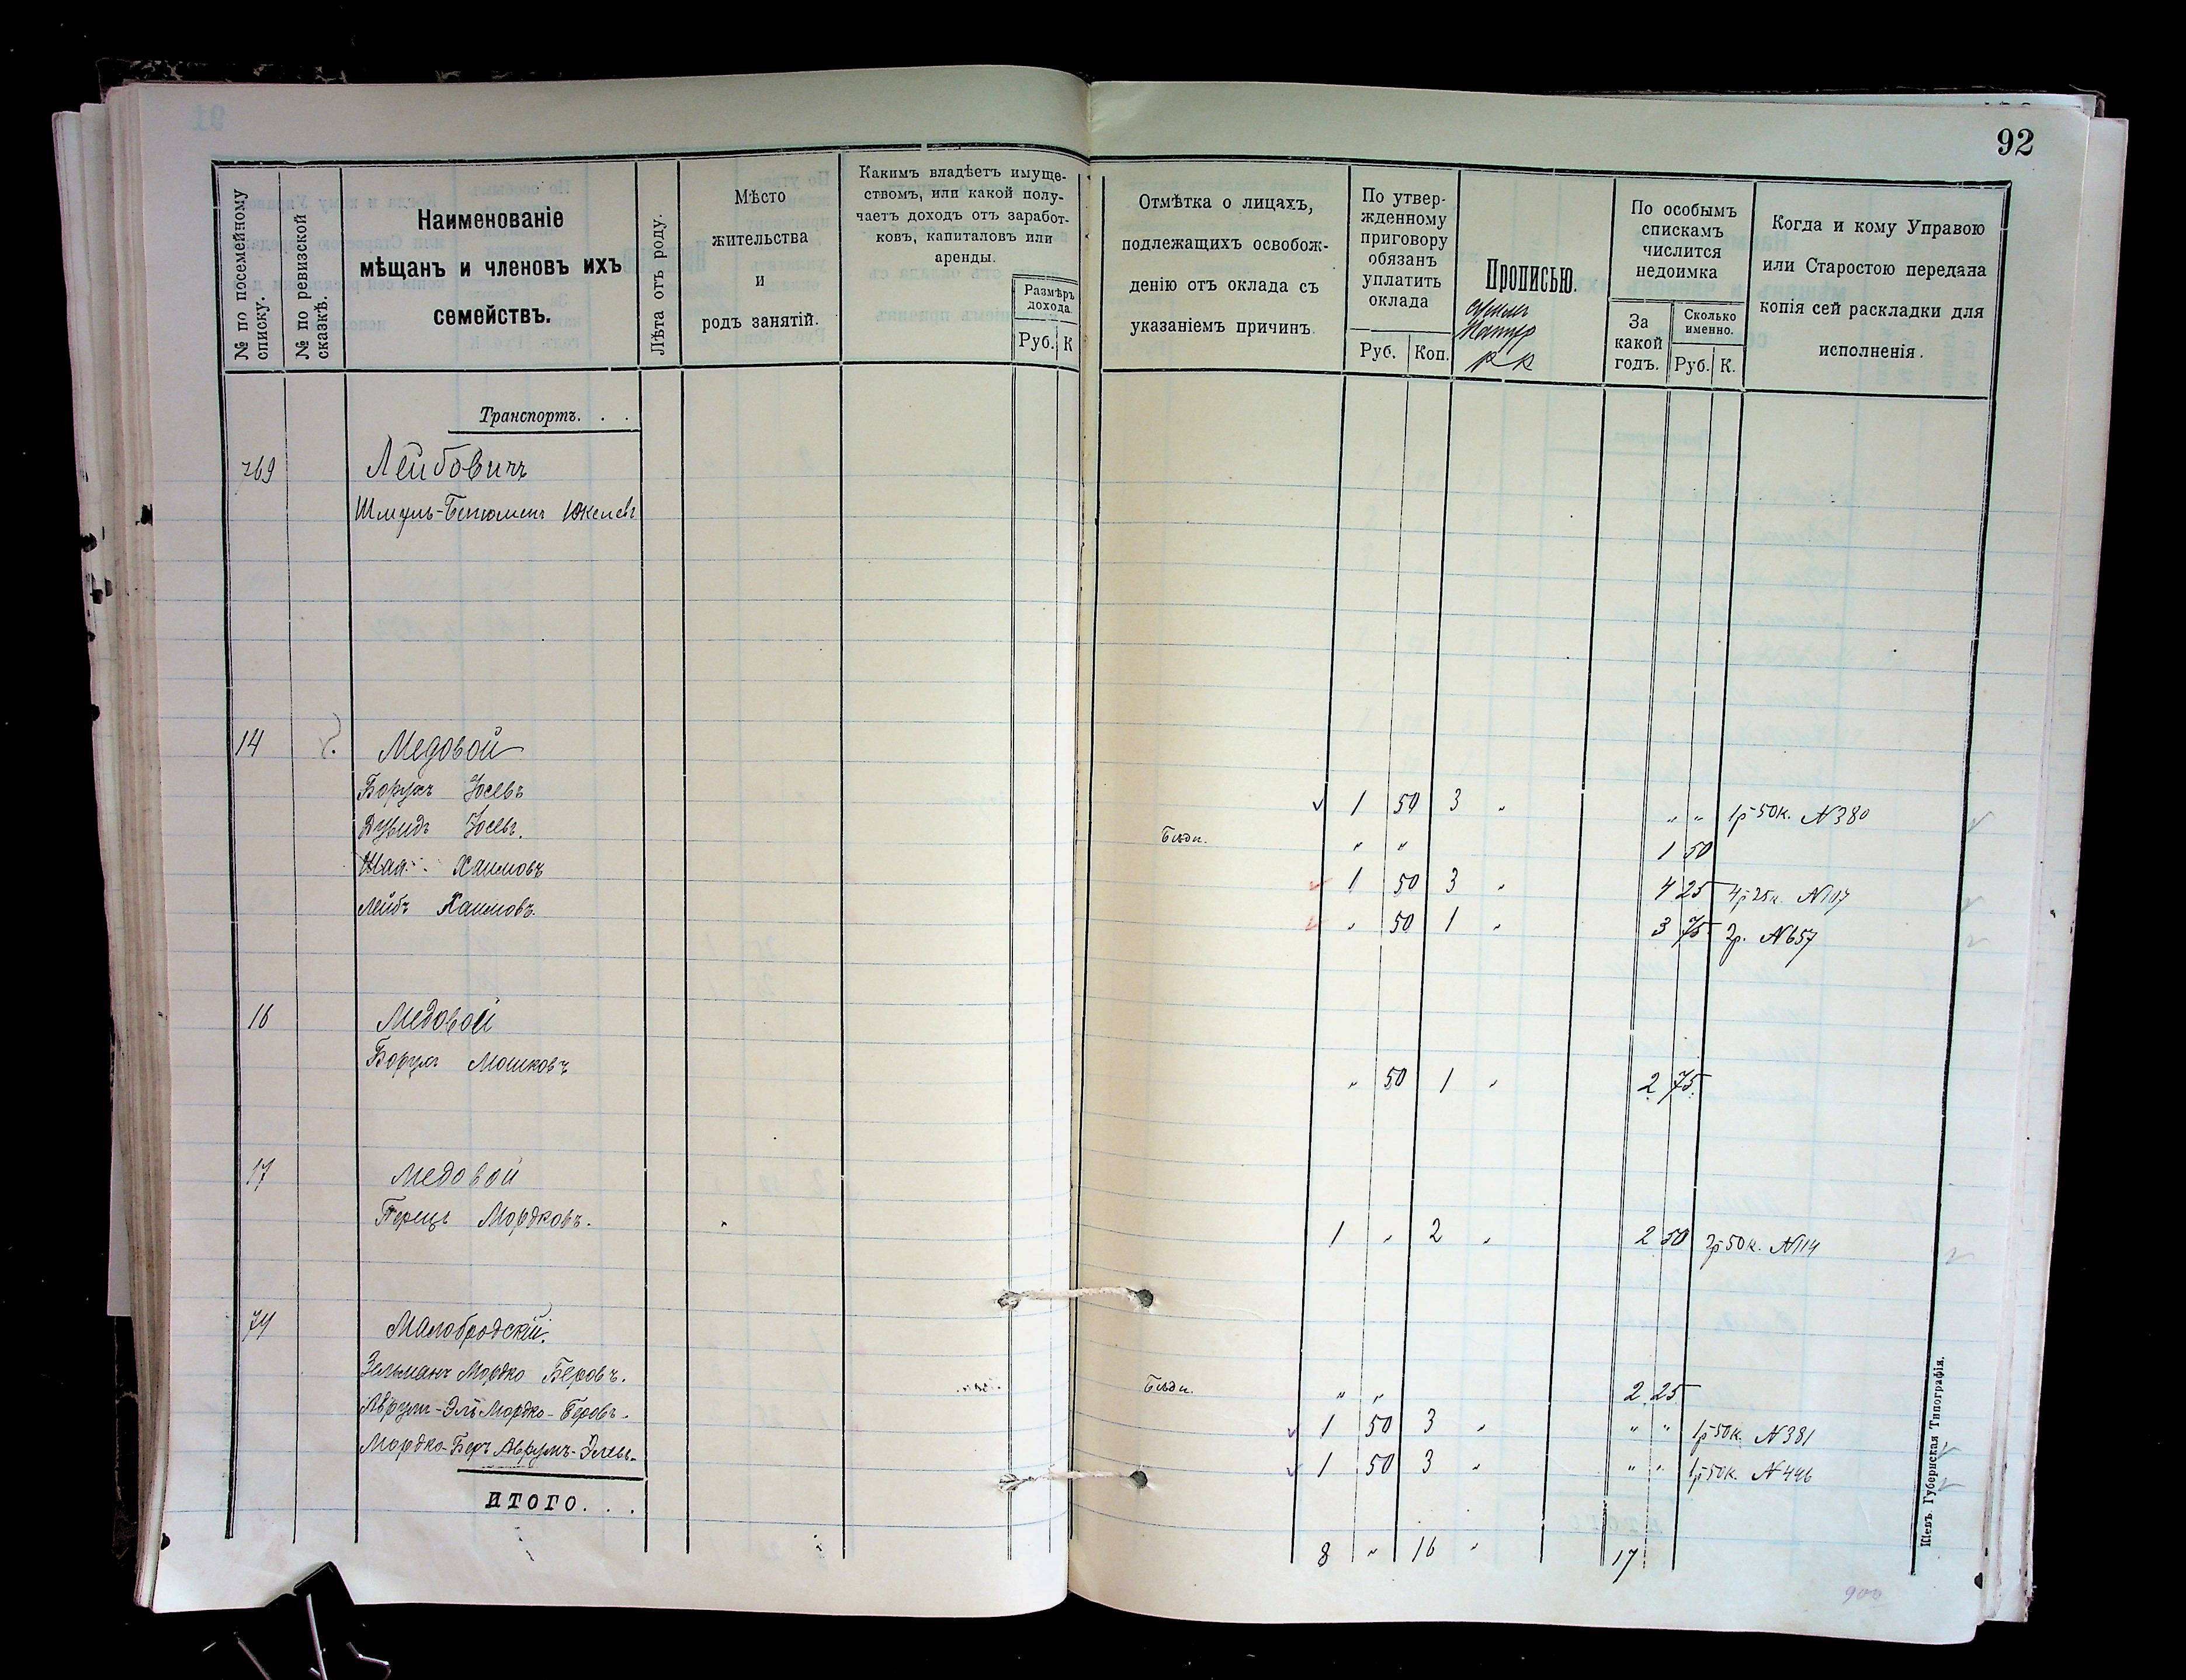 92
№ по посемейному списку.
№ по ревизской сказкѣ.
Наименованіе
мѣщанъ и членовъ ихъ
семействъ.
Лѣта отъ роду.
Мѣсто
жительства
и
родъ занятій.
Какимъ владѣетъ имуще-
ствомъ, или какой полу-
чаетъ доходъ отъ заработ-
ковъ, капиталовъ или
аренды.
Размѣръ
дохода
Руб. К
Отмѣтка о лицахъ,
подлежащихъ освобож-
денію отъ оклада съ
указаніемъ причинъ.
По утвер-
жденному
приговору
обязанъ
уплатить
оклада
Руб. Коп.
Прописью.
Р К
По особымъ
спискамъ
числится
недоимка
За
какой
годъ.
Сколько
именно.
Руб. К.
Когда и кому Управою
или Старостою передана
копія сей раскладки для
исполненія.
Транспортъ. . .
769 Лейбовичъ
Шмуль-Бенюменъ Юкелевъ
14 Медовой
Борухъ Іосевъ 1 50 3 „ „ „ 1р 50к. №380
Дувидъ Іосевъ. Бѣдн. „ „ 1 50
Шая Хаимовъ 1 50 3 „ 4 25 4р 25к. №107
Лейбъ Хаимовъ. „ 50 1 „ 3 75 2р. №657
16 Медовой
Борухъ Мошковъ „ 50 1 „ 2 75
17 Медовой
Перецъ Мордковъ. 1 „ 2 „ 2 50 2р 50к. №114
74 Малобродскій.
Зельманъ Мордко Беровъ. Бѣдн. „ „ 2 25
Аврумъ-Эль Мордко-Беровъ. 1 50 3 „ „ „ 1р 50к. №381
Мордко-Беръ Аврумъ-Элевъ. 1 50 3 „ „ „ 1р 50к. №446
ИТОГО. . .
8 „ 16 „ 17
900
Кіевъ. Губернская Типографія.